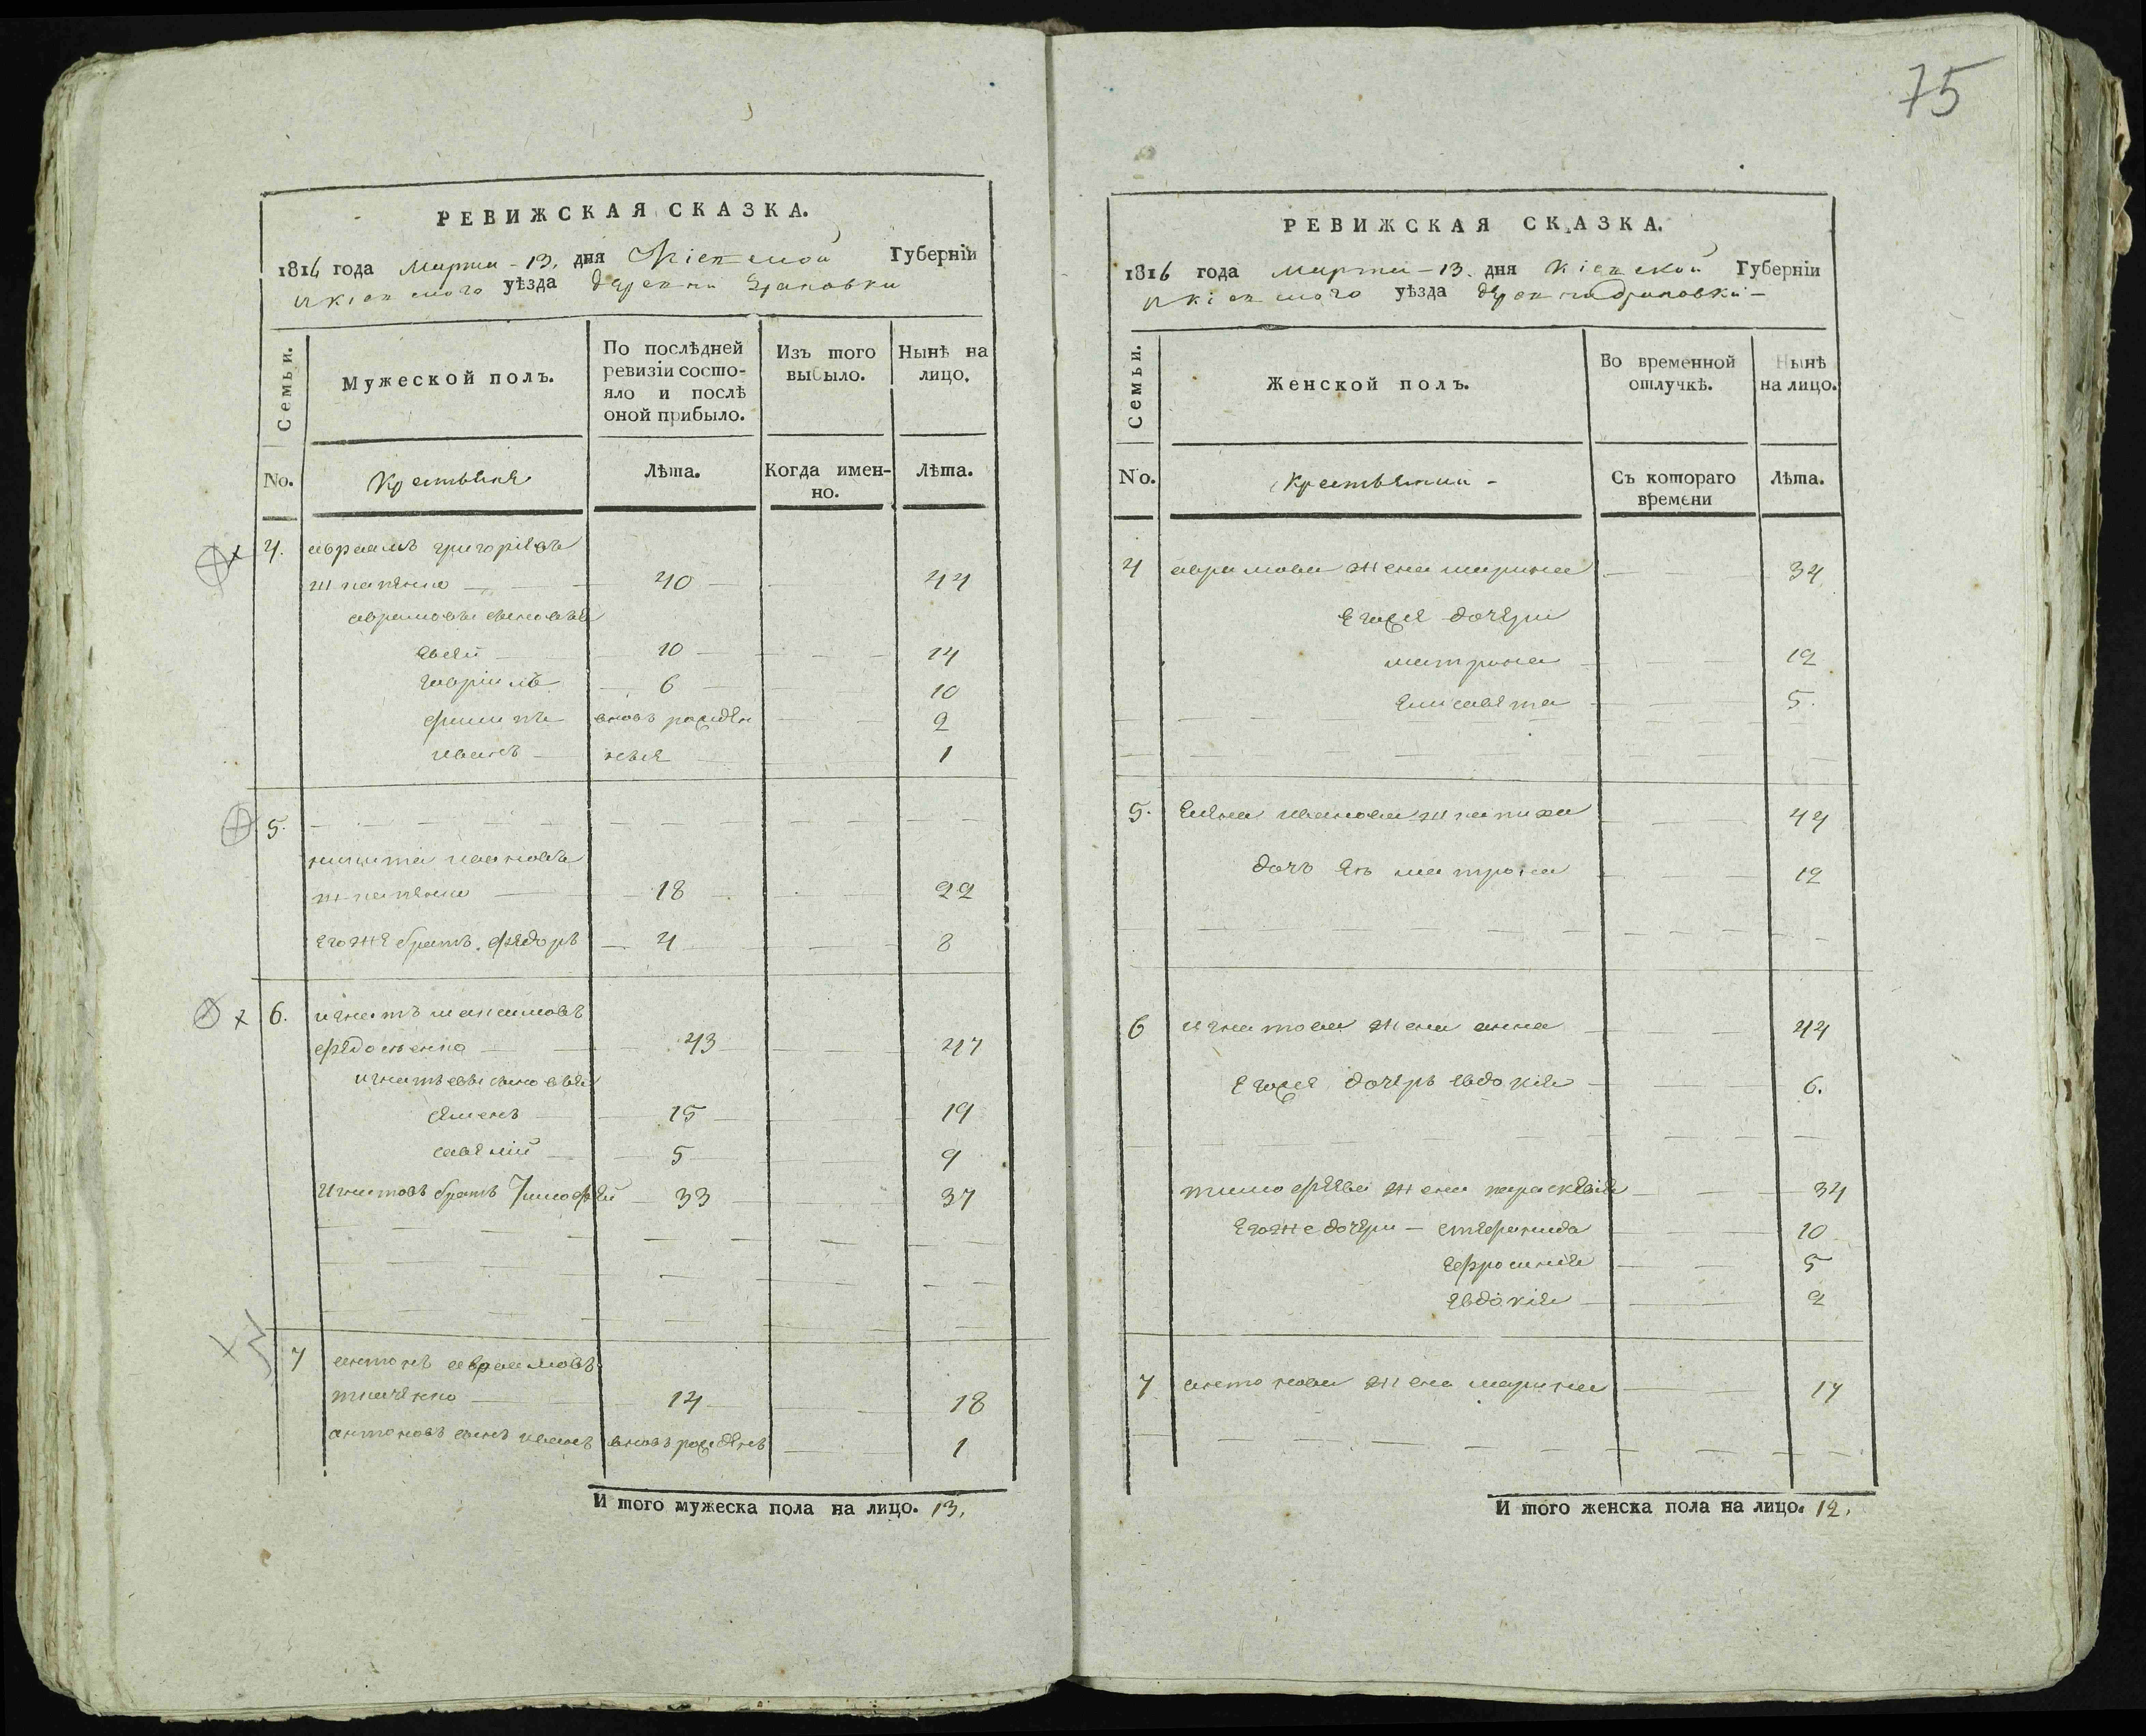 75
РЕВИЖСКАЯ СКАЗКА.
1816 года марта - 13. дня Кіевской Губерніи
и кіевского уѣзда деревни
Семьи.
Мужеской полъ.
По послѣдней ревизіи состо-
яло и послѣ оной прибыло.
Изъ того выбыло.
Нынѣ на лицо.
No.
Крестьяня
Лѣта.
Когда имен-
но.
Лѣта.
4. авраамъ григоріевъ
40 44
аврамовы сыновья
евсей 10 14
гавріилъ 6 10
филипъ вновь рожден 2
иванъ ныя 1
5.
никита ивановъ
18 22
егоже братъ федоръ 4 8
6. игнатъ максимовъ
43 47
игнатьевы сыновья
семенъ 15 19
савелій 5 9
Игнатовъ братъ Тимофей 33 37
7 антонъ авраамовъ
ткаченко 14 18
антоновъ сынъ иванъ вновь рожденъ 1
И того мужеска пола на лицо. 13.
РЕВИЖСКАЯ СКАЗКА.
1816 года марта - 13. дня Кіевской Губерніи
и кіевского уѣзда деревни
Семьи.
Женской полъ.
Во временной отлучкѣ.
Нынѣ на лицо.
No.
Крестьянки -
Съ котораго времени
Лѣта.
4 аврамова жена марина 34
Егоже дочери
матрона 12
елисавета 5.
5. елена иванова 44
дочь ея матрона 12
6 игнатова жена анна 44
Егоже дочерь евдокія 6.
тимофеева жена параскевія 34
Егоже дочери - стефанида 10
Ефросинія 5
Евдокія 2
7 антонова жена марина 17
И того женска пола на лицо. 12.